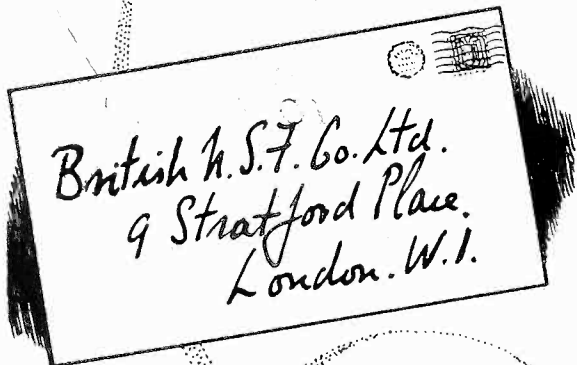 British N.S.F. Co. Ltd.
9 Stratford Place.
London. W.1.